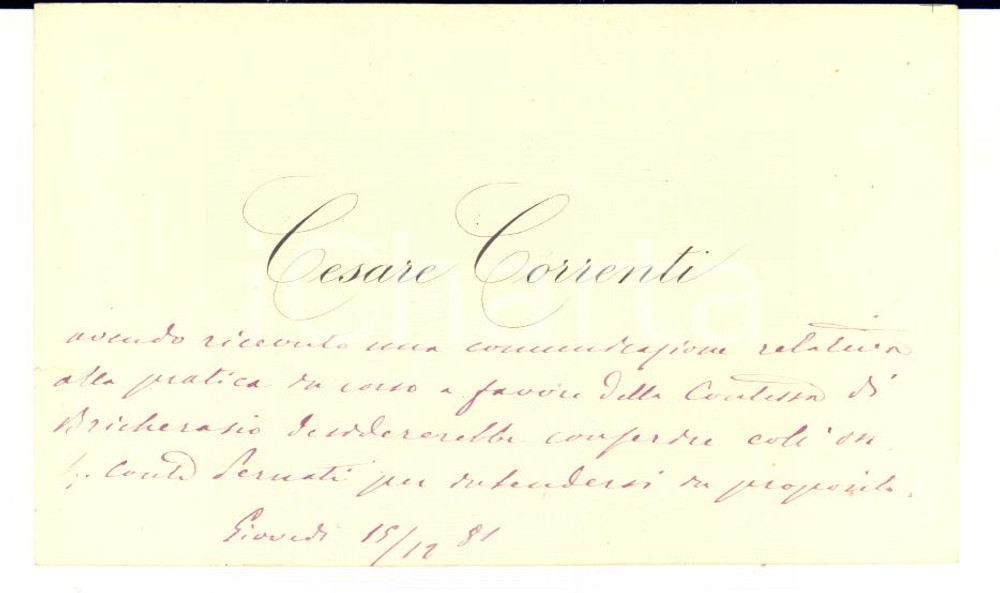 Cesare Correnti
avendo ricevuto una comunicazione relativa
alla pratica in corso a favore della Contessa di
Bricherasio desidererebbe conferire coll'on
Sr. Conte Pernati per intendersi in proposito.
Giovedì 15/12 81
iCharta